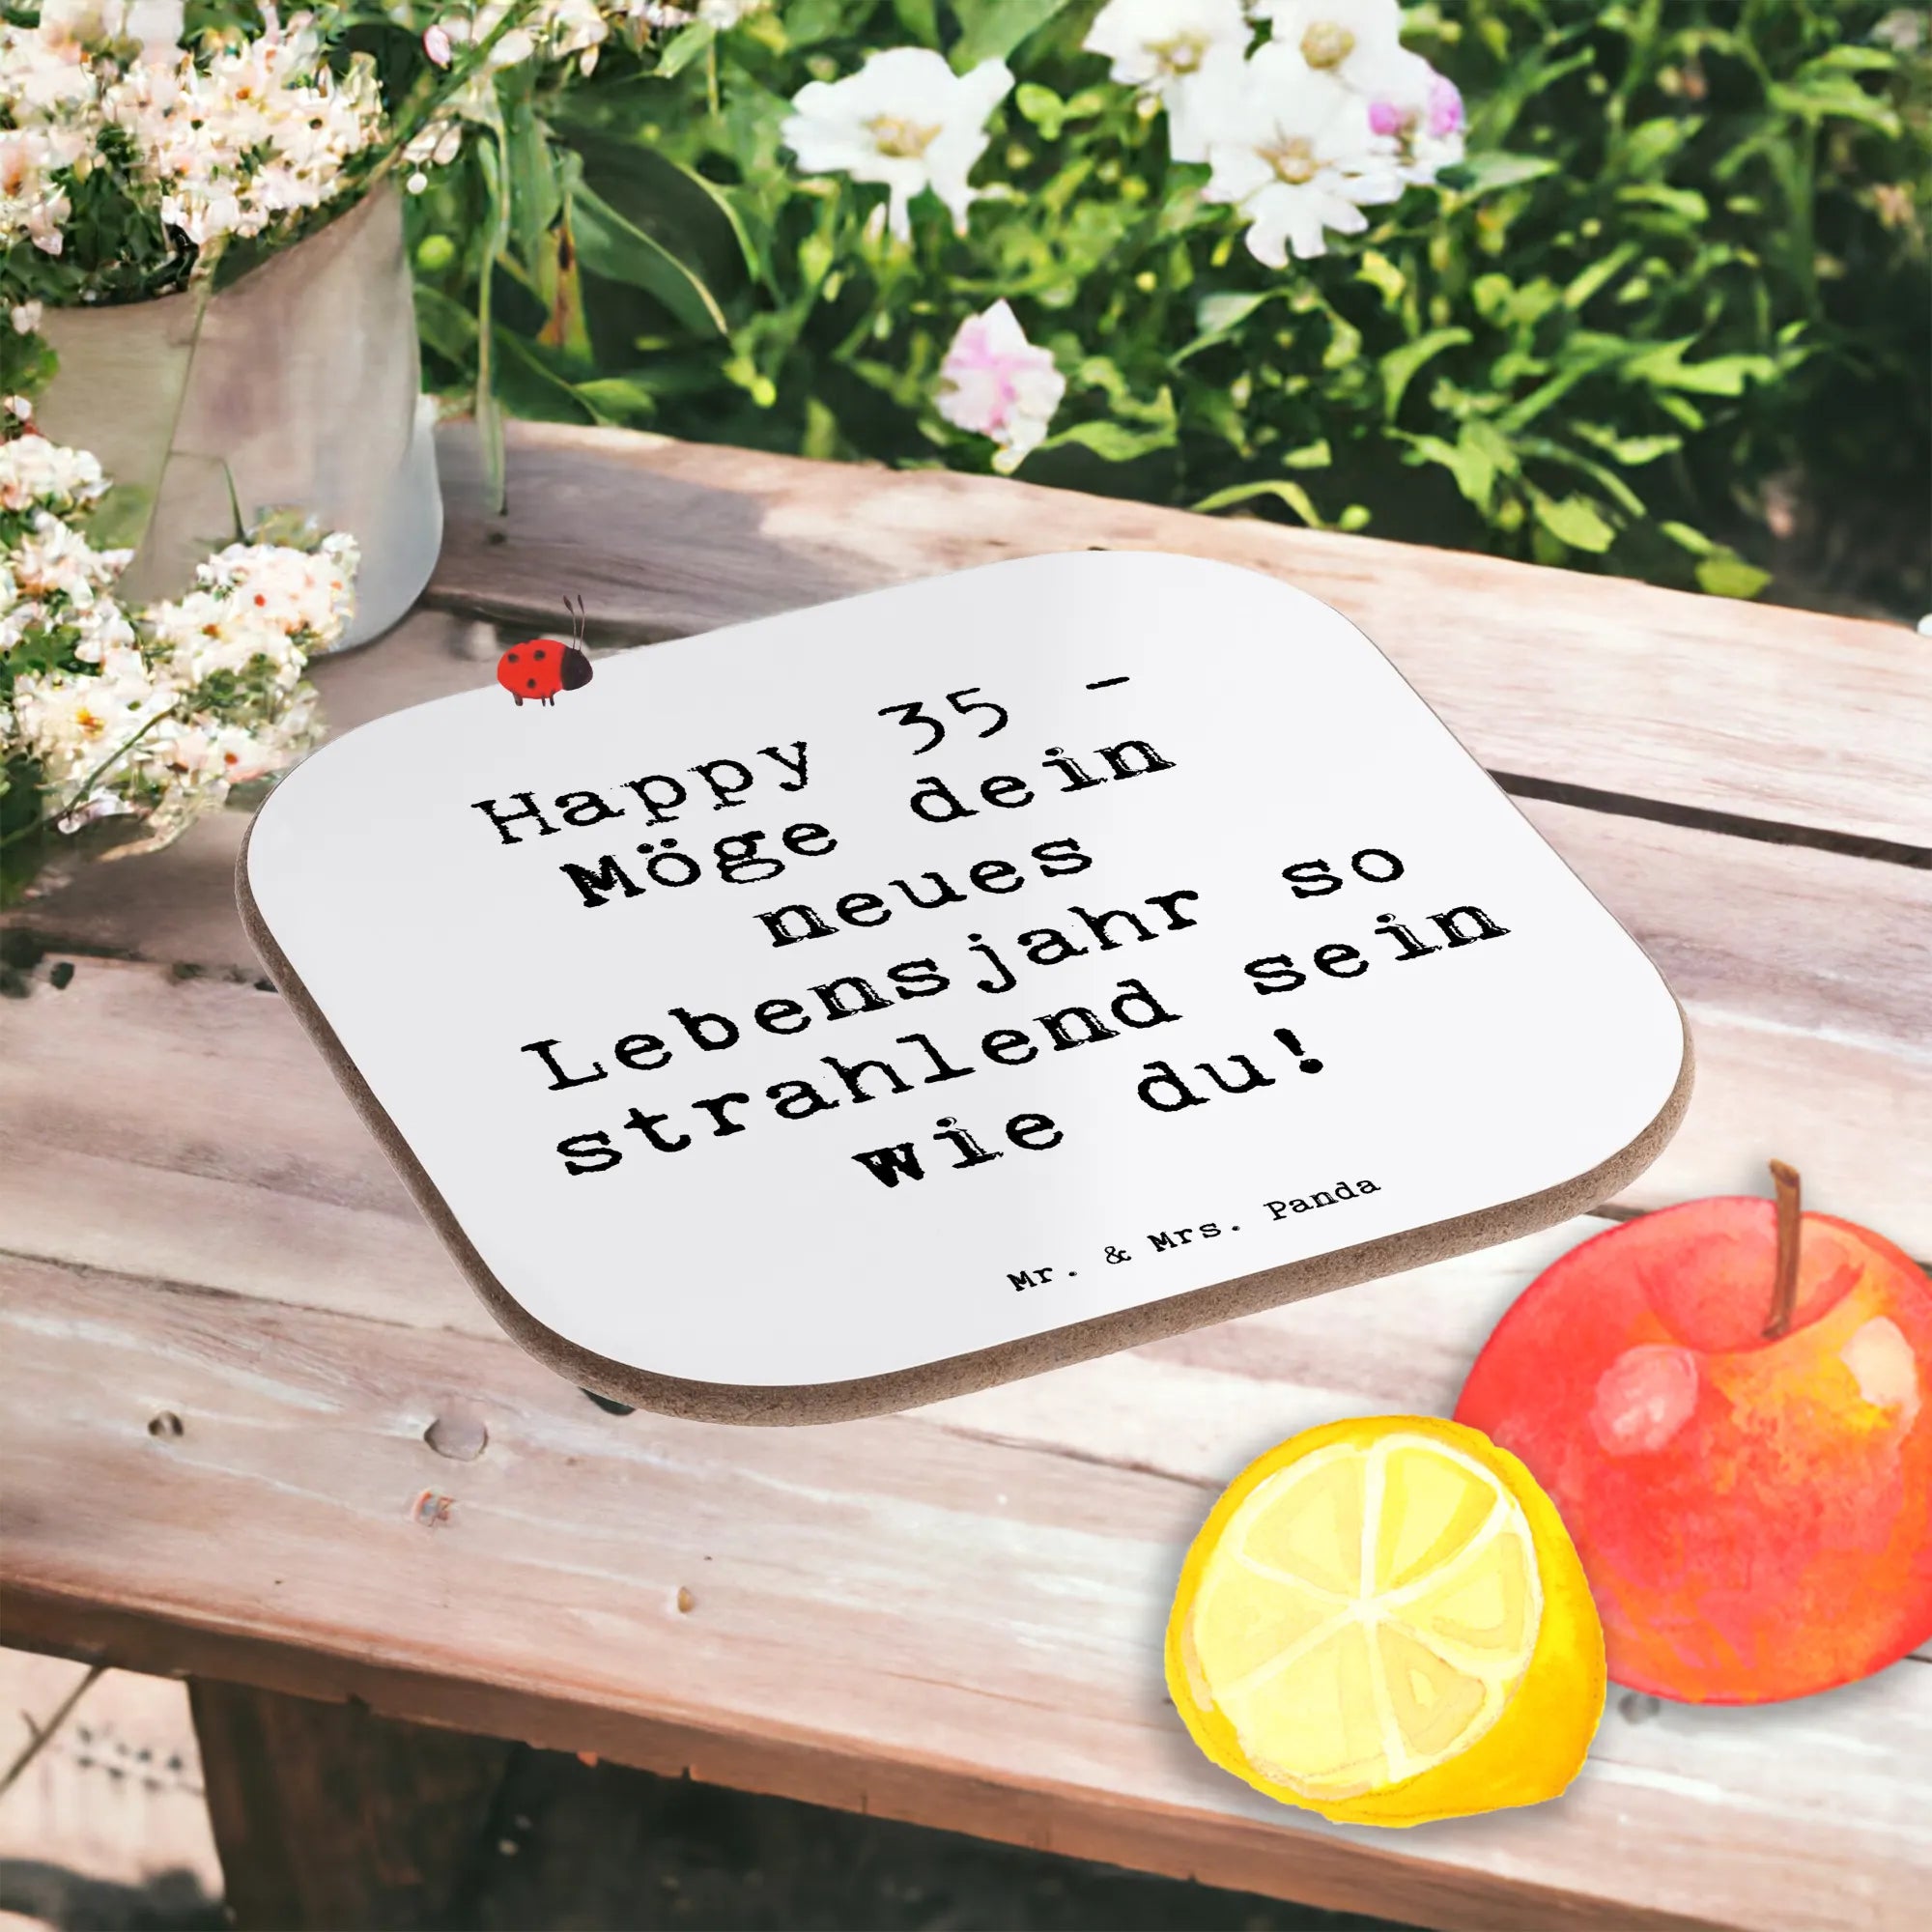 Happy 35 -
Möge dein
neues
Lebensjahr so
strahlend sein
wie du!
Mr. & Mrs. Panda